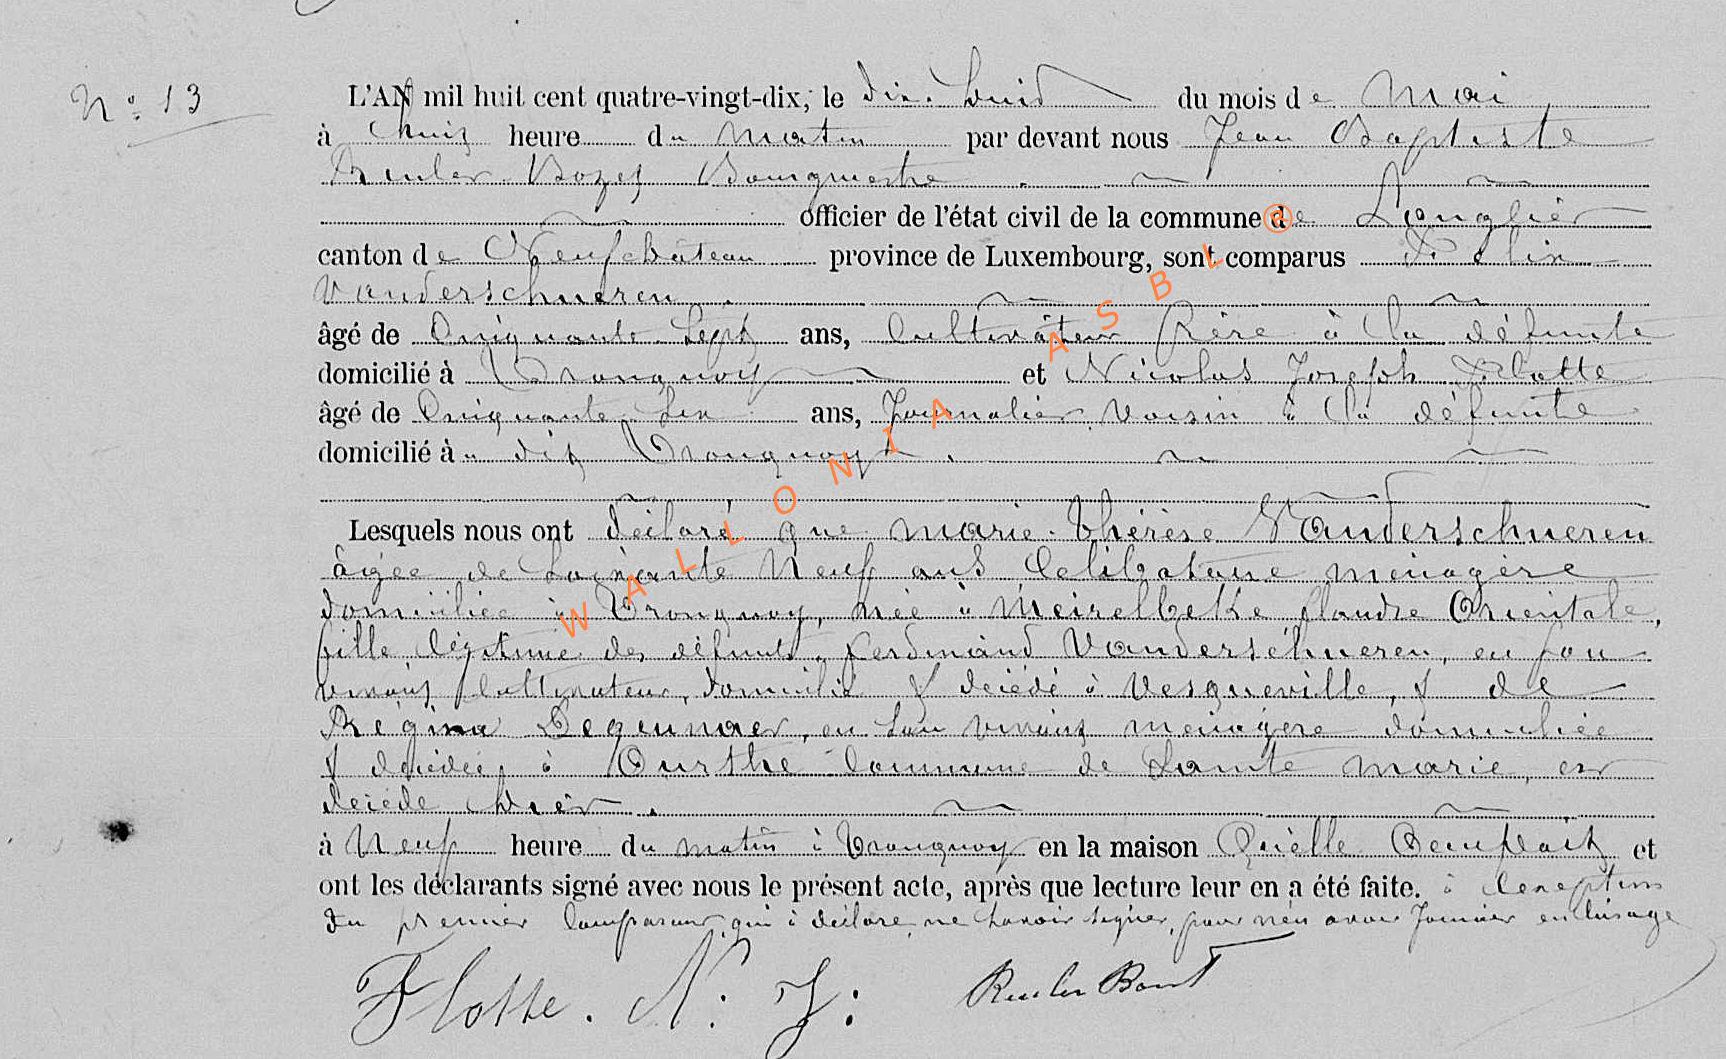 N° 13
L'AN mil huit cent quatre-vingt-dix, le dix-huit du mois de Mai,
à huit heure du Matin par devant nous Jean Baptiste
Reuler Bourgmestre
officier de l'état civil de la commune de Longlier
canton de Neufchâteau province de Luxembourg, sont comparus
Vanderschueren
âgé de Cinquante Sept ans, Cultivateur frère à la défunte
domicilié à Tronquoy et Nicolas Joseph Flotte
âgé de Cinquante six ans, Journalier voisin à la défunte
domicilié à dit Tronquoy.
Lesquels nous ont déclaré que marie Thérèse Vanderschueren
âgée de Soixante Neuf ans Célibataire menagère
domiciliée à Tronquoy, née à Meirelbeke flandre Orientale,
fille légitime des défunts Ferdinand Vanderschueren, en Son
vivant Cultivateur, domicilié & décédé à Vesqueville, & de
Régina en Son vivant menagère domiciliée
& décédée à Ourthe Commune de Sainte marie, est
décédé hier.
à Neuf heure du matin à Tronquoy en la maison Quèlle Occupait et
ont les déclarants signé avec nous le présent acte, après que lecture leur en a été faite. à l'exception
du premier Comparant, qui à déclaré ne Savoir signer, pour n'en avoir Jamais eu l'usage
Flotte. N: J: Reuler Bourt
WALLONIA ASBL ®